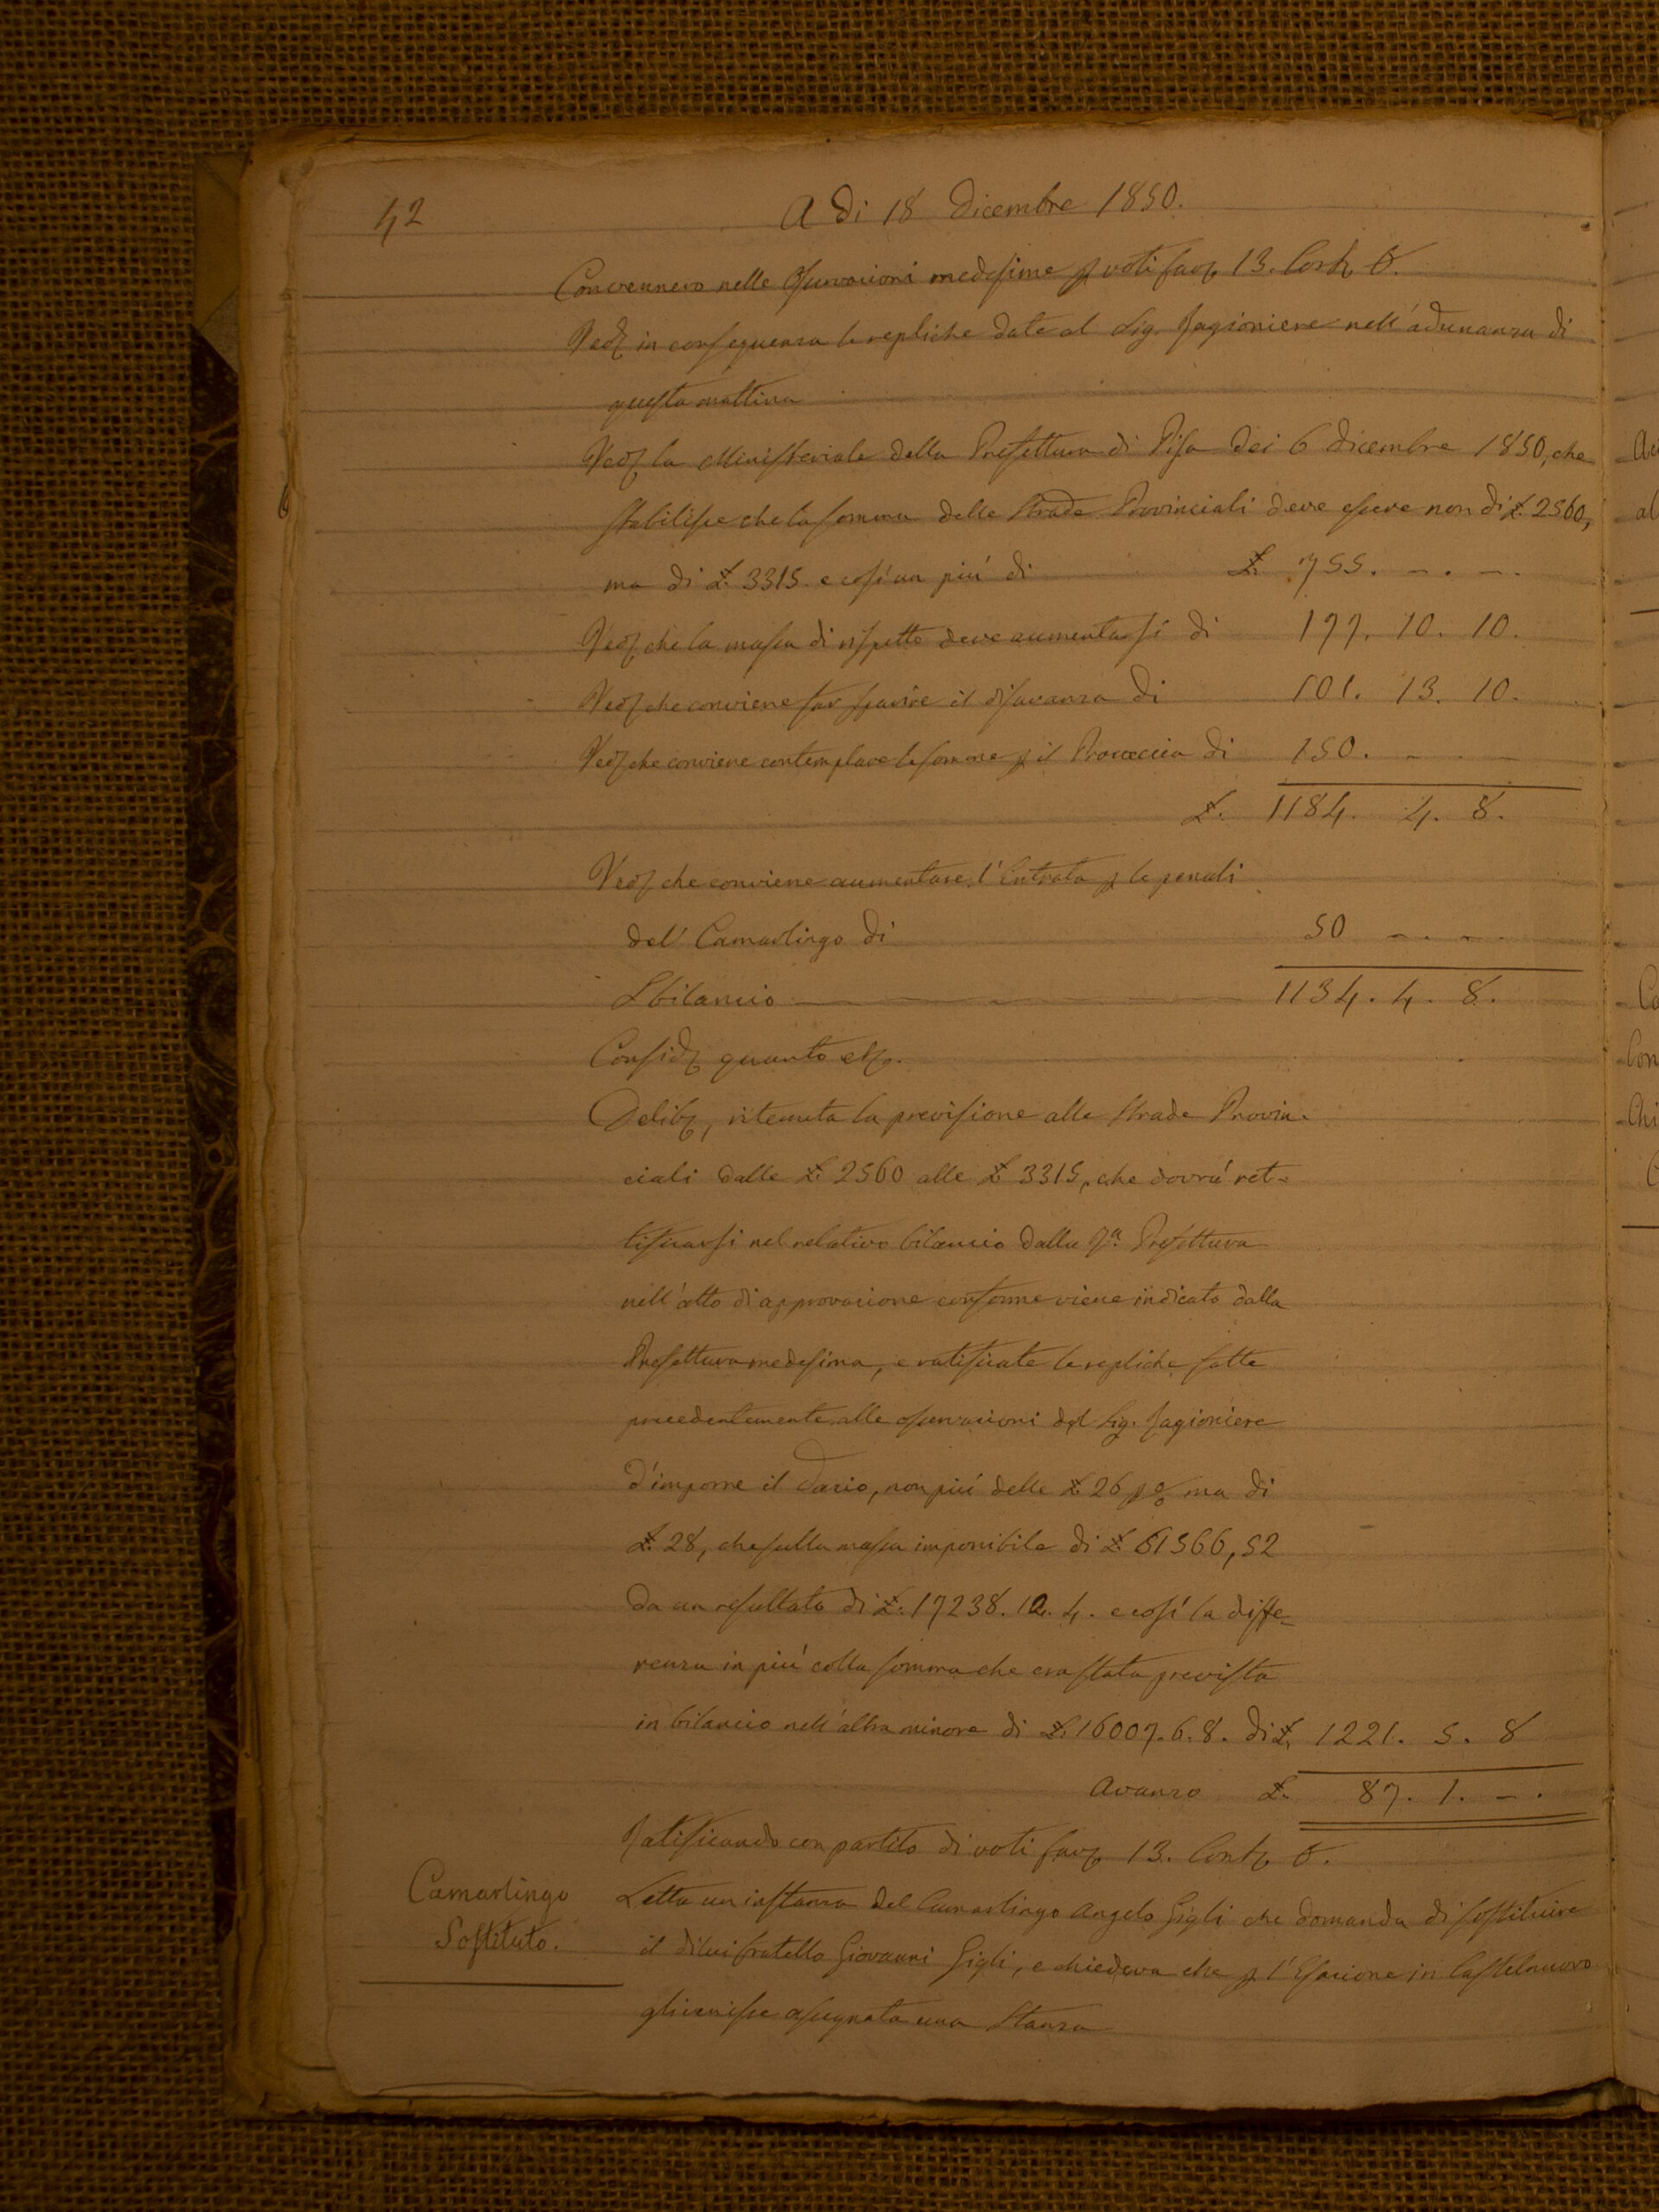 42
A di 18 Dicembre 1850.
Convennero nelle Osservazioni medesime p voti favz 13. Contz 0.
Vedz in conseguenza le repliche date al Sig. Ragioniere nell'adunanza di
questa mattina
Vedz la Ministeriale della Prefettura di Pisa dei 6 Dicembre 1850, che
stabilisce che la somma delle Strade Provinciali deve essere non di £. 2560,
ma di £. 3315 e così un più di £. 755. – . – .
Vedz che la massa di rispetto deve aumentarsi di 177. 10. 10.
Vedz che conviene far sparire il disavanzo di 101. 13. 10.
Vedz che conviene contemplare le somme p il Procaccia di 150. – –
£. 1184. 4. 8.
Vedz che conviene aumentare l'Entrata p le penali
del Camarlingo di 50 – . – .
Sbilancio 1134. 4. 8.
Considz quanto etz.
Delibz, ritenuta la previsione alle Strade Provin-
ciali dalle £. 2560 alle £ 3315, che dovrà ret-
tificarsi nel relativo bilancio dalla Pa. Prefettura
nell'atto di approvazione conforme viene indicato dalla
Prefettura medesima, e ratificate le repliche fatte
precedentemente alle osservazioni del Sig. Ragioniere
d'imporre il Dazio, non più delle £. 26 p % ma di
£. 28, che sulla massa imponibile di £. 61566,52
da un resultato di £. 17238. 12. 4. e così la diffe-
renza in più colla somma che era stata prevista
in bilancio nell'altra minore di £. 16007. 6. 8. di £. 1221. 5. 8
Avanzo £. 87. 1. – .
Ratificando con partito di voti favz 13. Contz 0.
Camarlingo
Sostituto.
Letta un instanza del Camarlingo Angelo Gigli che domanda di sostituire
il di lui fratello Giovanni Gigli, e chiedeva che p l'Esazione in Castelnuovo
gli venisse assegnata una Stanza